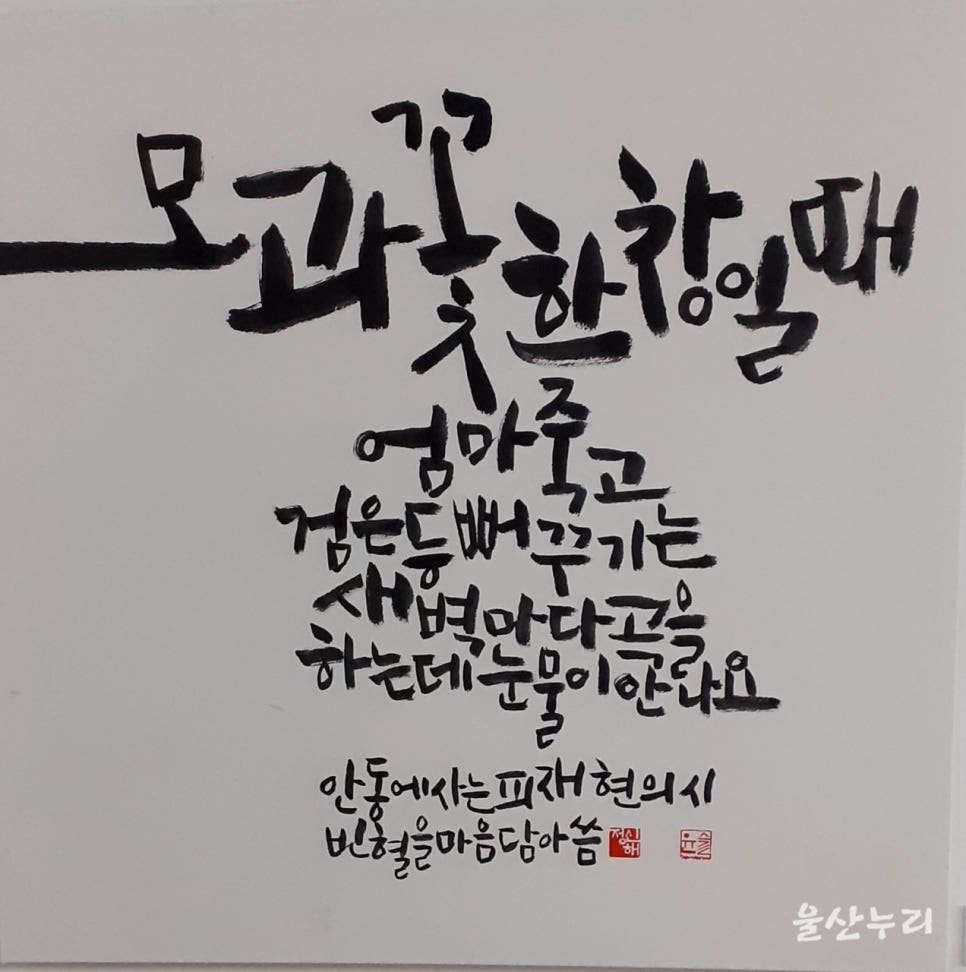 모과꽃 한창일 때
엄마 죽고
검은등뻐꾸기는
새벽마다 곡을
하는데 눈물이 안나요
안동에 사는 피재현의 시
빈혈을 마음담아 씀
정신해
윤슬
울산누리